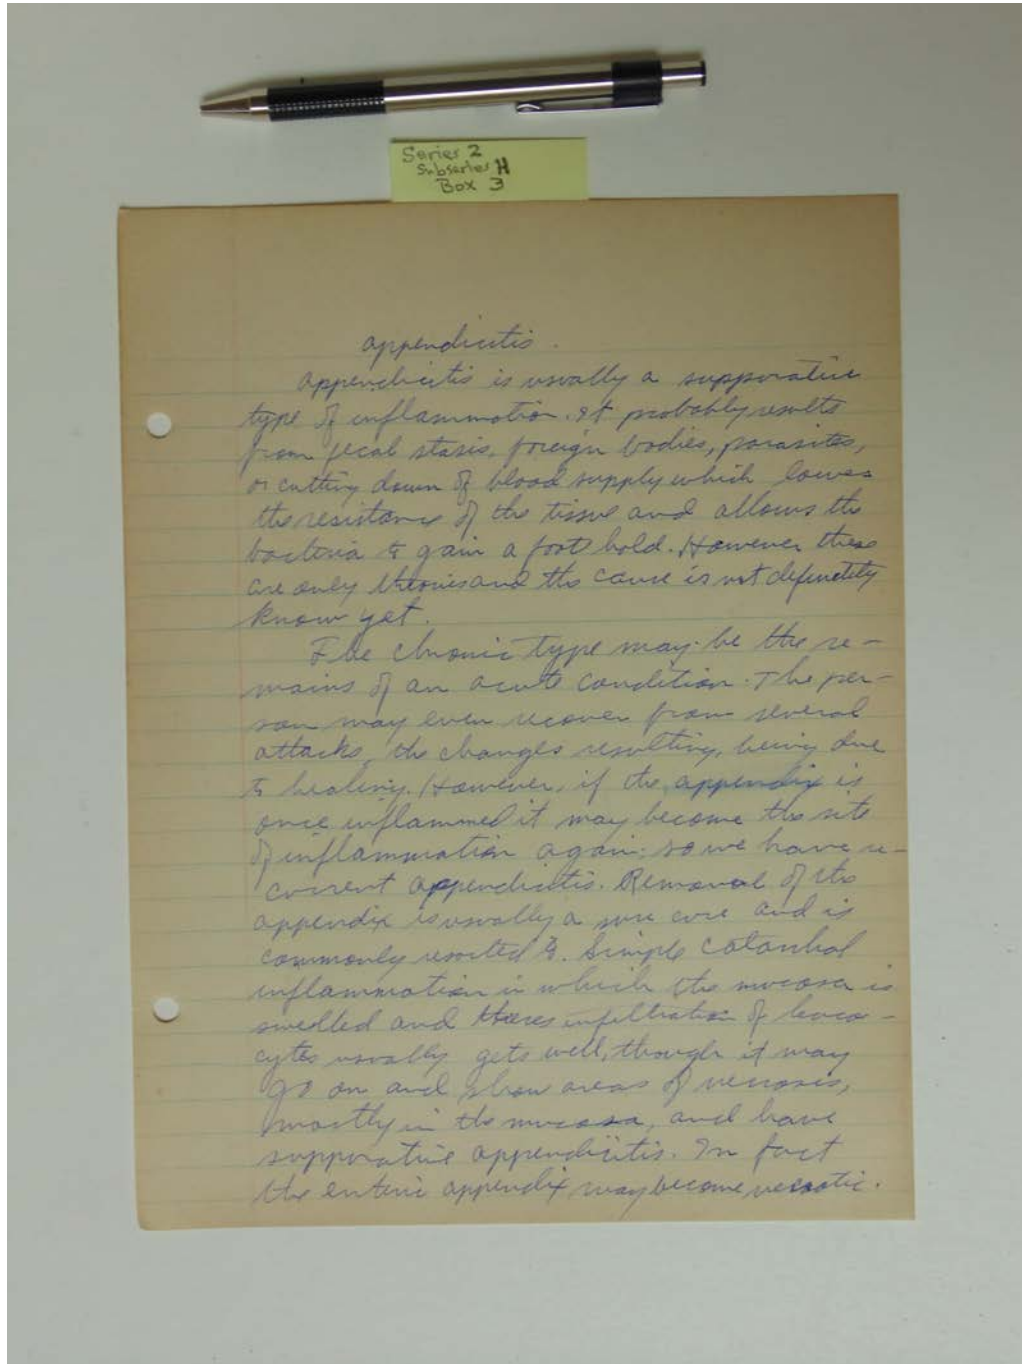 Series 2
Subseries H
Box 3
appendicitis.
appendicitis is usually a suppurative
type of inflammation. It probably results
from fecal stasis, foreign bodies, parasites,
or cutting down of blood supply which lowers
the resistance of the tissue and allows the
bacteria to gain a foot hold. However these
are only theories and the cause is not definetely
know yet.
The chronic type may be the re-
mains of an acute condition. The per-
son may even recover from several
attacks, the changes resulting, being due
to healing. However, if the appendix is
once inflammed it may become the site
of inflammation again; so we have re-
current appendicitis. Removal of the
appendix is usually a sure cure and is
commonly resorted to. Simple catarrhal
inflammation in which the mucosa is
swelled and theres infiltration of leuco-
cytes usually gets well, though it may
go on and show areas of necrosis,
mostly in the mucosa, and have
suppurative appendicitis. In fact
the entire appendix may become necrotic.